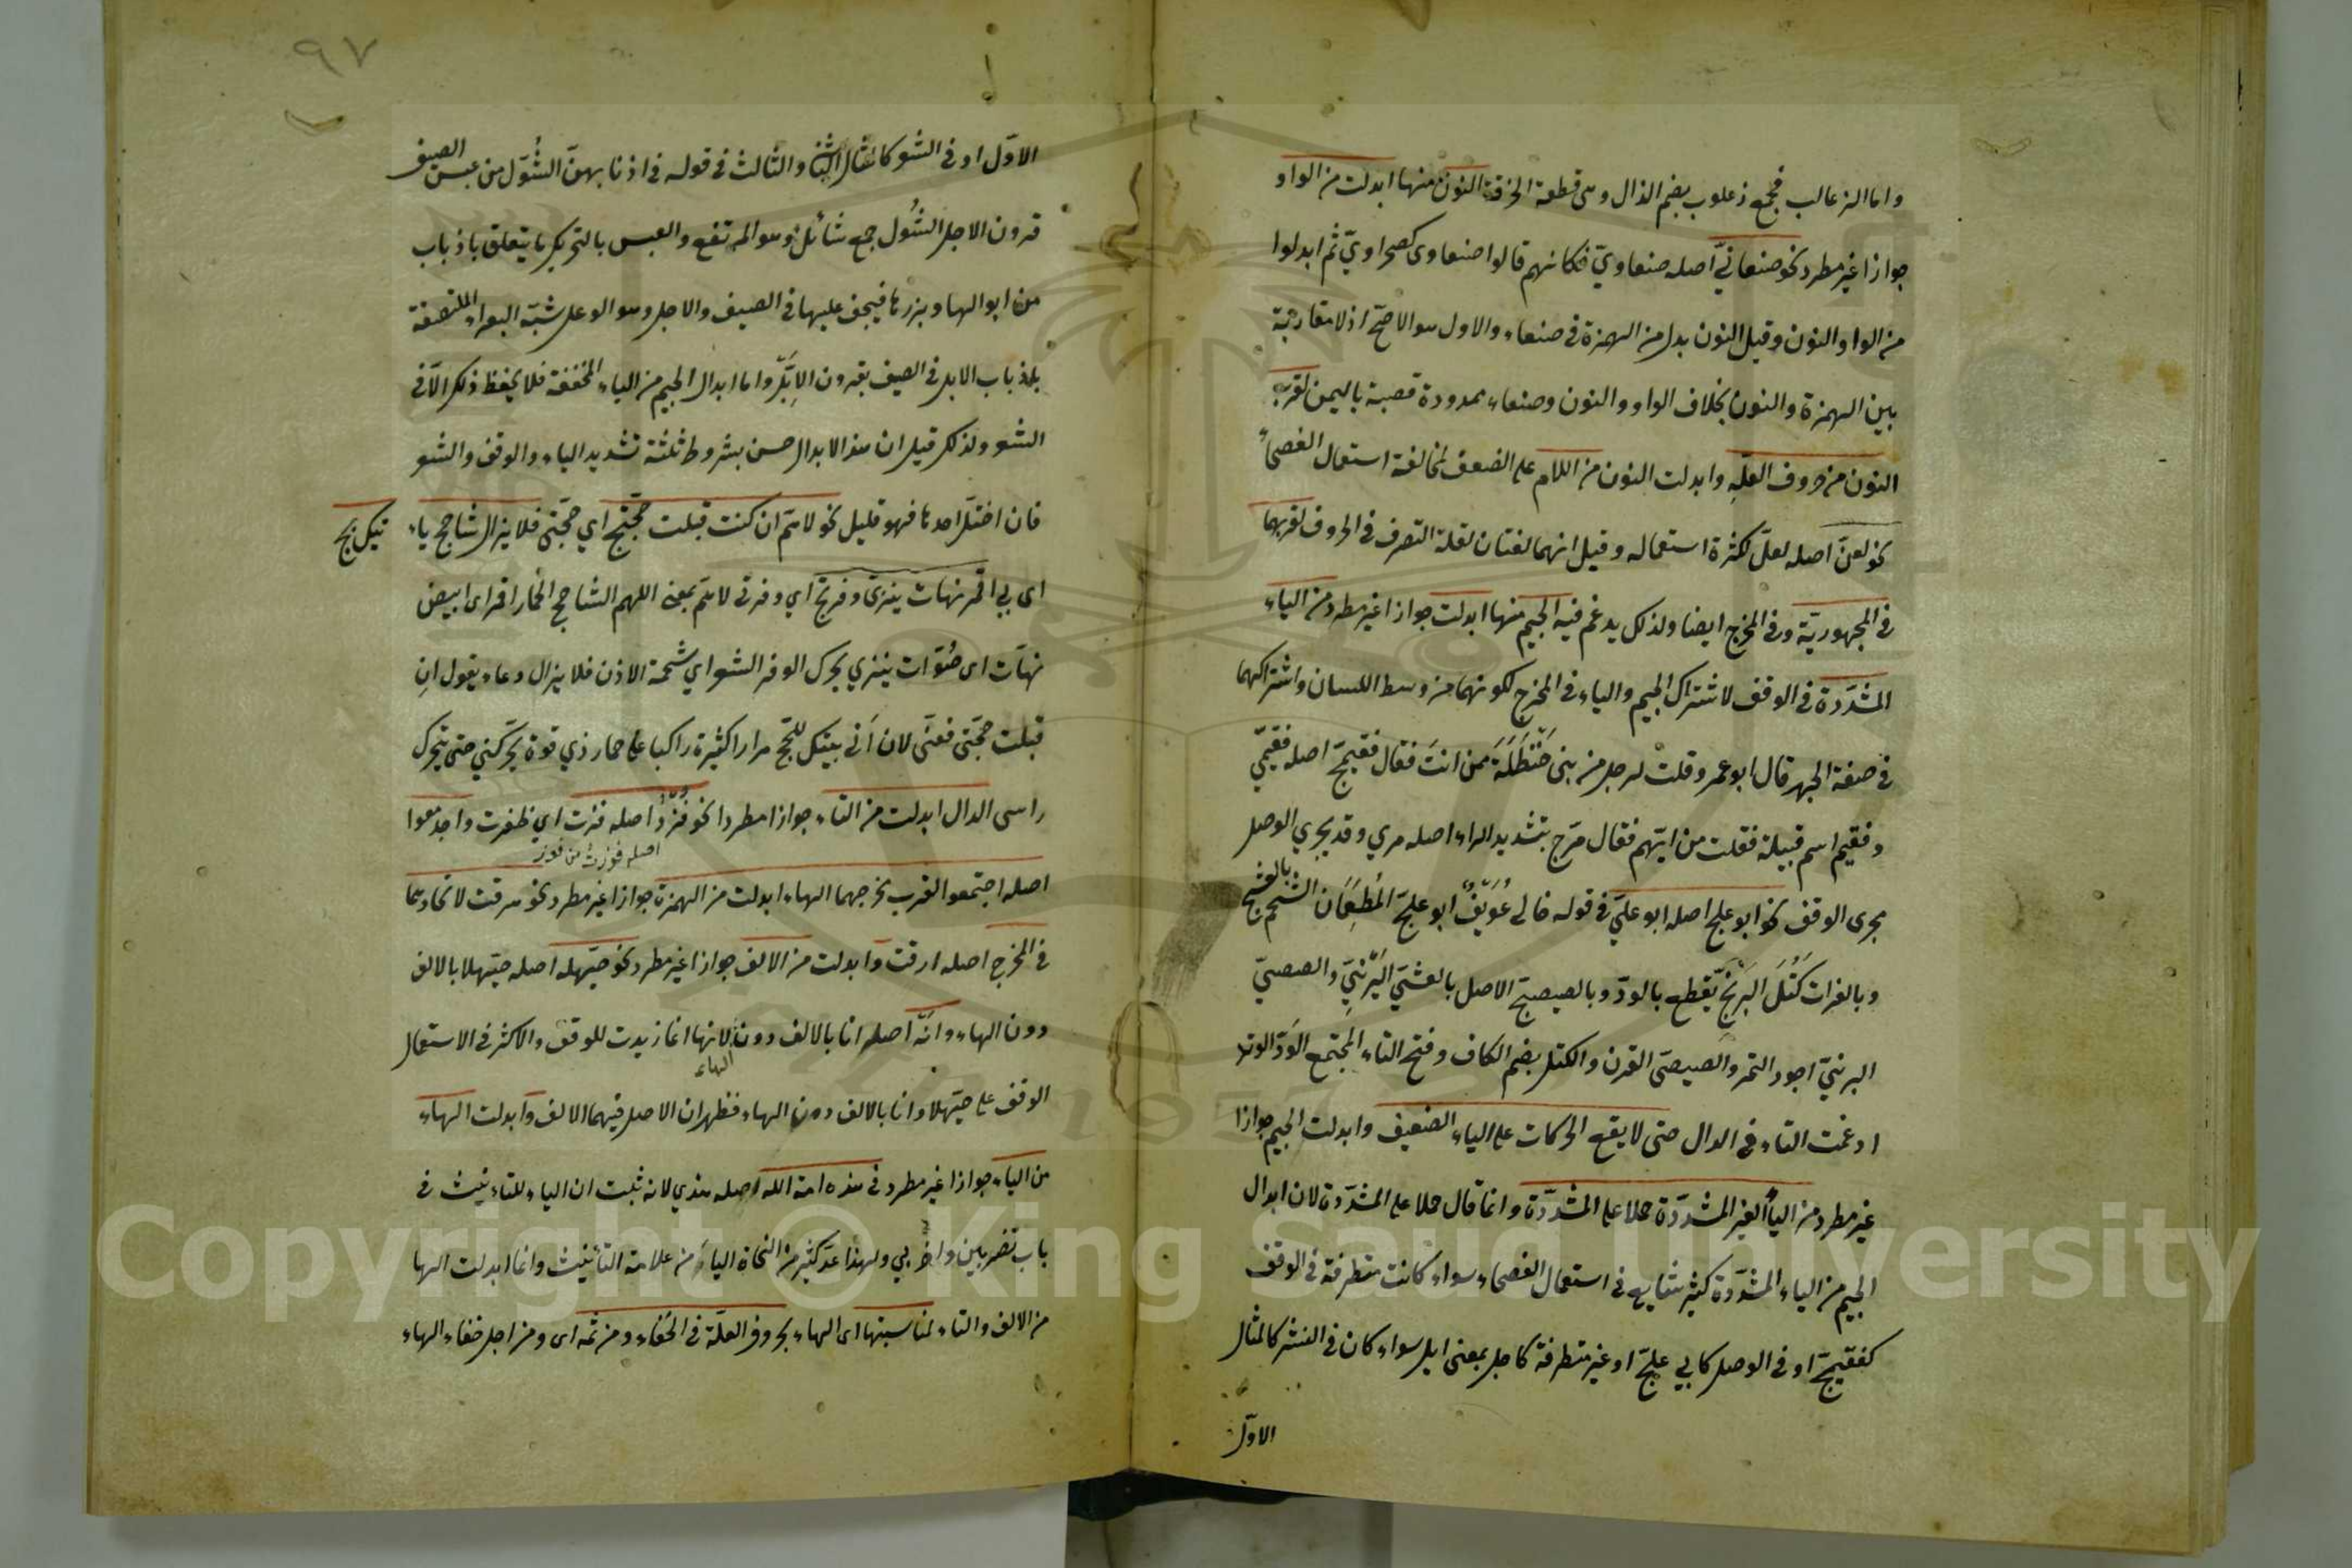 واما الزعالب فجمع ذعلوب بضم الذال وهى قطعة الخرقة النون منها ابدلت من الواو
جوازا غير مطرد نحو صنعانيّ اصله صنعاويّ فكانهم قالوا صنعاوى كصحراويّ ثم ابدلوا
من الواو النون وقيل النون بدل من الهمزة فى صنعاء والاول هو الاصحّ اذ لا مقاربة
بين الهمزة والنون بخلاف الواو والنون وصنعاء ممدودة قصبة باليمن لقرب
النون من حروف العلّة وابدلت النون من اللام على الضعف لمخالفة استعمال الفصحاء
نحو لعنّ اصله لعلّ لكثرة استعماله وقيل انهما لغتان لقلة التصرف فى الحروف لقربهما
فى المجهوريّة وفى المخرج ايضا ولذلك يدغم فيه الجيم منها ابدلت جوازا غير مطرد من الياء
المشدّدة فى الوقف لاشتراك الجيم والياء فى المخرج لكونهما من وسط اللسان واشتراكهما
فى صفة الجهر قال ابو عمرو قلت لرجل من بنى حَنْظَلَة ممن انتَ فقال فقيمجّ اصله فقيميّ
وفقيم اسم قبيلة فقلت من ايّهم فقال مرّج بتشديد الراء اصله مري وقد يجري الوصل
مجرى الوقف نحو ابو علج اصله ابو عليّ فى قوله خالى عُوَيفٌ ابو علجّ المُطعِمَان الشحم بالعشجّ
وبالغراة كُتَلَ البَرْنجّ يُقطع بالودّ وبالصيصجّ الاصل بالعشيّ البَرْنيّ والصيصيّ
البرنيّ اجود التمر والصيصىّ القرن والكتل بضم الكاف وفتح التاء المجتمع الوَدّ الوتد
ادغمت التاء فى الدال حتى لا يقع الحركات على الياء الضعيف وابدلت الجيم جوازا
غير مطرد من الياء الغير المشدّدة حملا على المشدّدة وانما قال حملا على المشدّدة لان ابدال
الجيم من الياء المشدّدة كثير شايع فى استعمال الفصحاء سواء كانت متطرفة فى الوقف
كفقيمجّ او فى الوصل كابي علجّ او غير متطرفة كاجل بمعنى ايل سواء كان فى النثر كالمثال
الاوّل
٩٧
الاوّل او فى الشعر كالمثال الثانى والثالث فى قوله فى اذنابهنّ الشُّوّل من عبس الصيف
قرون الاجل الشُول جمع شائل وهو المرتفع والعبس بالتحريك ما يتعلق باذناب
من ابوالها وبزرها فيجف عليها فى الصيف والاجل وهو الوعل شبّه البعراء الملتصقة
باذناب الابل فى الصيف بقرون الاِيَّل واما ابدال الجيم من الياء المخففة فلا يحفظ ذلك الا فى
الشعر ولذلك قيل ان هذا الابدال حسن بشروط ثلثة تشديد الياء والوقف والشعر
فان اختلّ احدها فهو قليل نحو لا همّ ان كنت قبلت حجّتج اي حجّتى فلا يزال شاحج ياء
تيك بج
اى بي اقمر نهات ينزى وفرتج اي وفرتى لا همّ بمعنى اللهم الشاحج الحمار اقمر اى ابيض
نهّات اى صُوّات ينزي يحرك الوفر الشعر اي شحمة الاذن فلا يزال دعاء يقول ان
قبلت حجّتى فعنّى لان آتى بيتك للحجّ مرارا كثيرة راكبا على حمار ذي قوة يحرّكني حتى يتحرك
راسى الدال ابدلت من التاء جوازا مطردا نحو فُزْدُ اصله فزت اي ظفرت واجدمعوا
اصله فوزت من فوز
اصله اجتمعوا لقرب مخرجهما الهاء ابدلت من الهمزة جوازا غير مطرد نحو هرقت لاتحادهما
فى المخرج اصله ارقت وابدلت من الالف جوازا غير مطرد نحو حيّهله اصله حيّهلا بالالف
دون الهاء وانّه اصله انا بالالف دون الهاء لانها انما زيدت للوقف والاكثر فى الاستعمال
الوقف على حيّهلا وانا بالالف دون الهاء فظهر ان الاصل فيهما الالف وابدلت الهاء
من الياء جوازا غير مطرد فى هذه امة الله اصله هذي لانه ثبت ان الياء للتاءنيث فى
باب تضربين واضربي ولهذا عدّ كثير من النحاة الياء من علامة التأنيث وانما ابدلت الها
من الالف والتاء لمناسبتها اى الهاء بحروف العلّة فى الخفاء ومن ثمه اى ومن اجل خفاء الهاء
Copyright © King Saud University